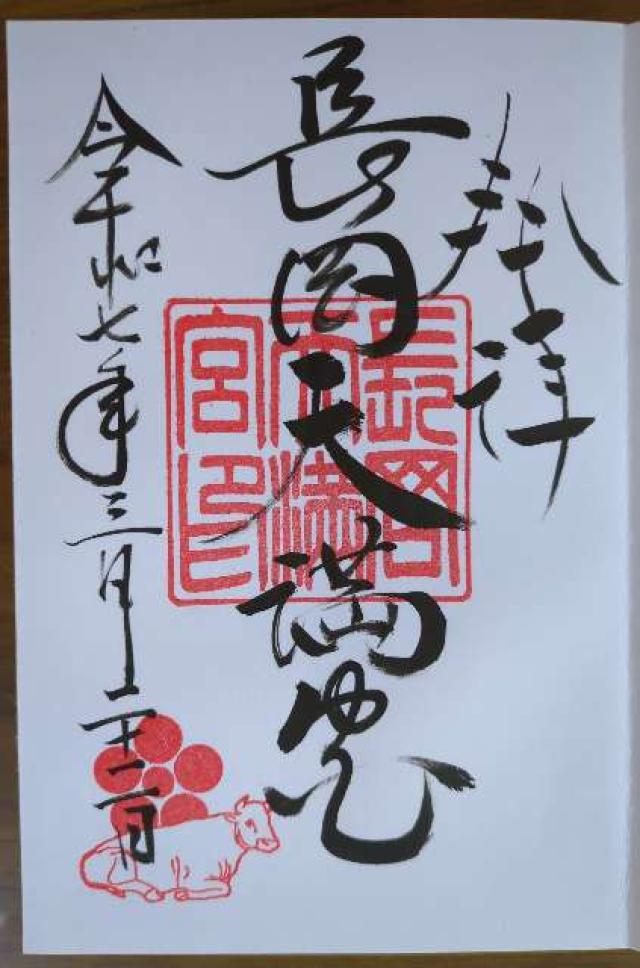 奉拝
長岡天満宮
長岡天満宮印
令和七年三月二十二日